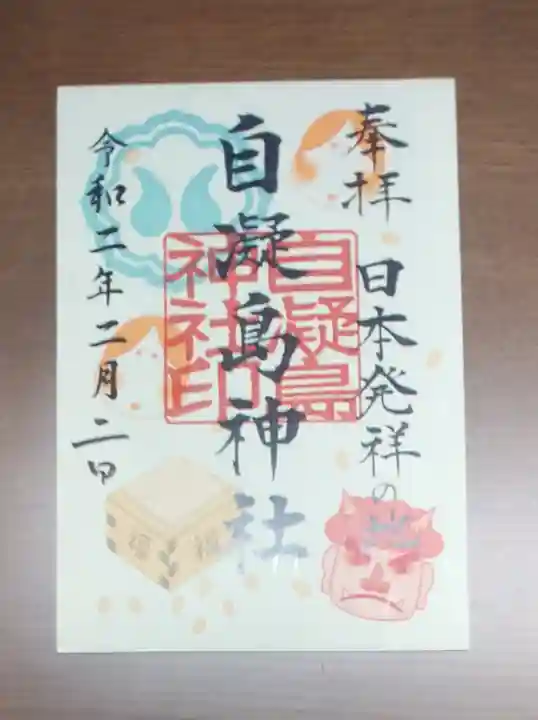 奉拝
日本発祥の
自凝島神社
自凝島
神社印
令和二年二月二日
福